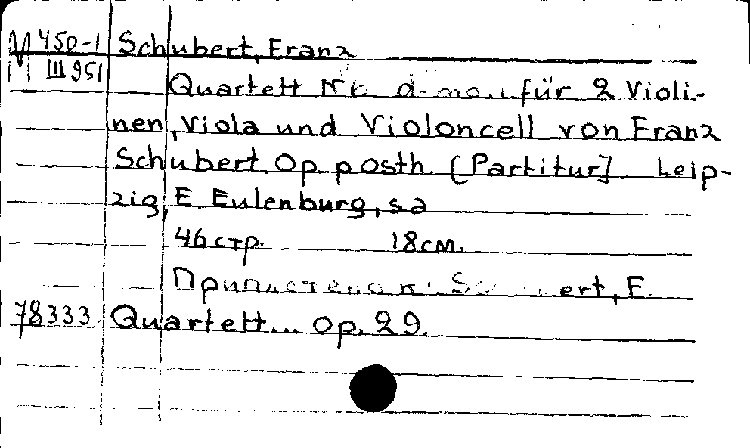 M 450-1 Schubert, Franz
III 951
Quartett d-mo für 2 Violi-
nen, Viola und Violoncell von Franz
Schubert Op. posth [Partitur] Leip-
zig, E. Eulenburg, s a
46 стр. 18 см.
ert, F.
78333 Quartett... op. 29.